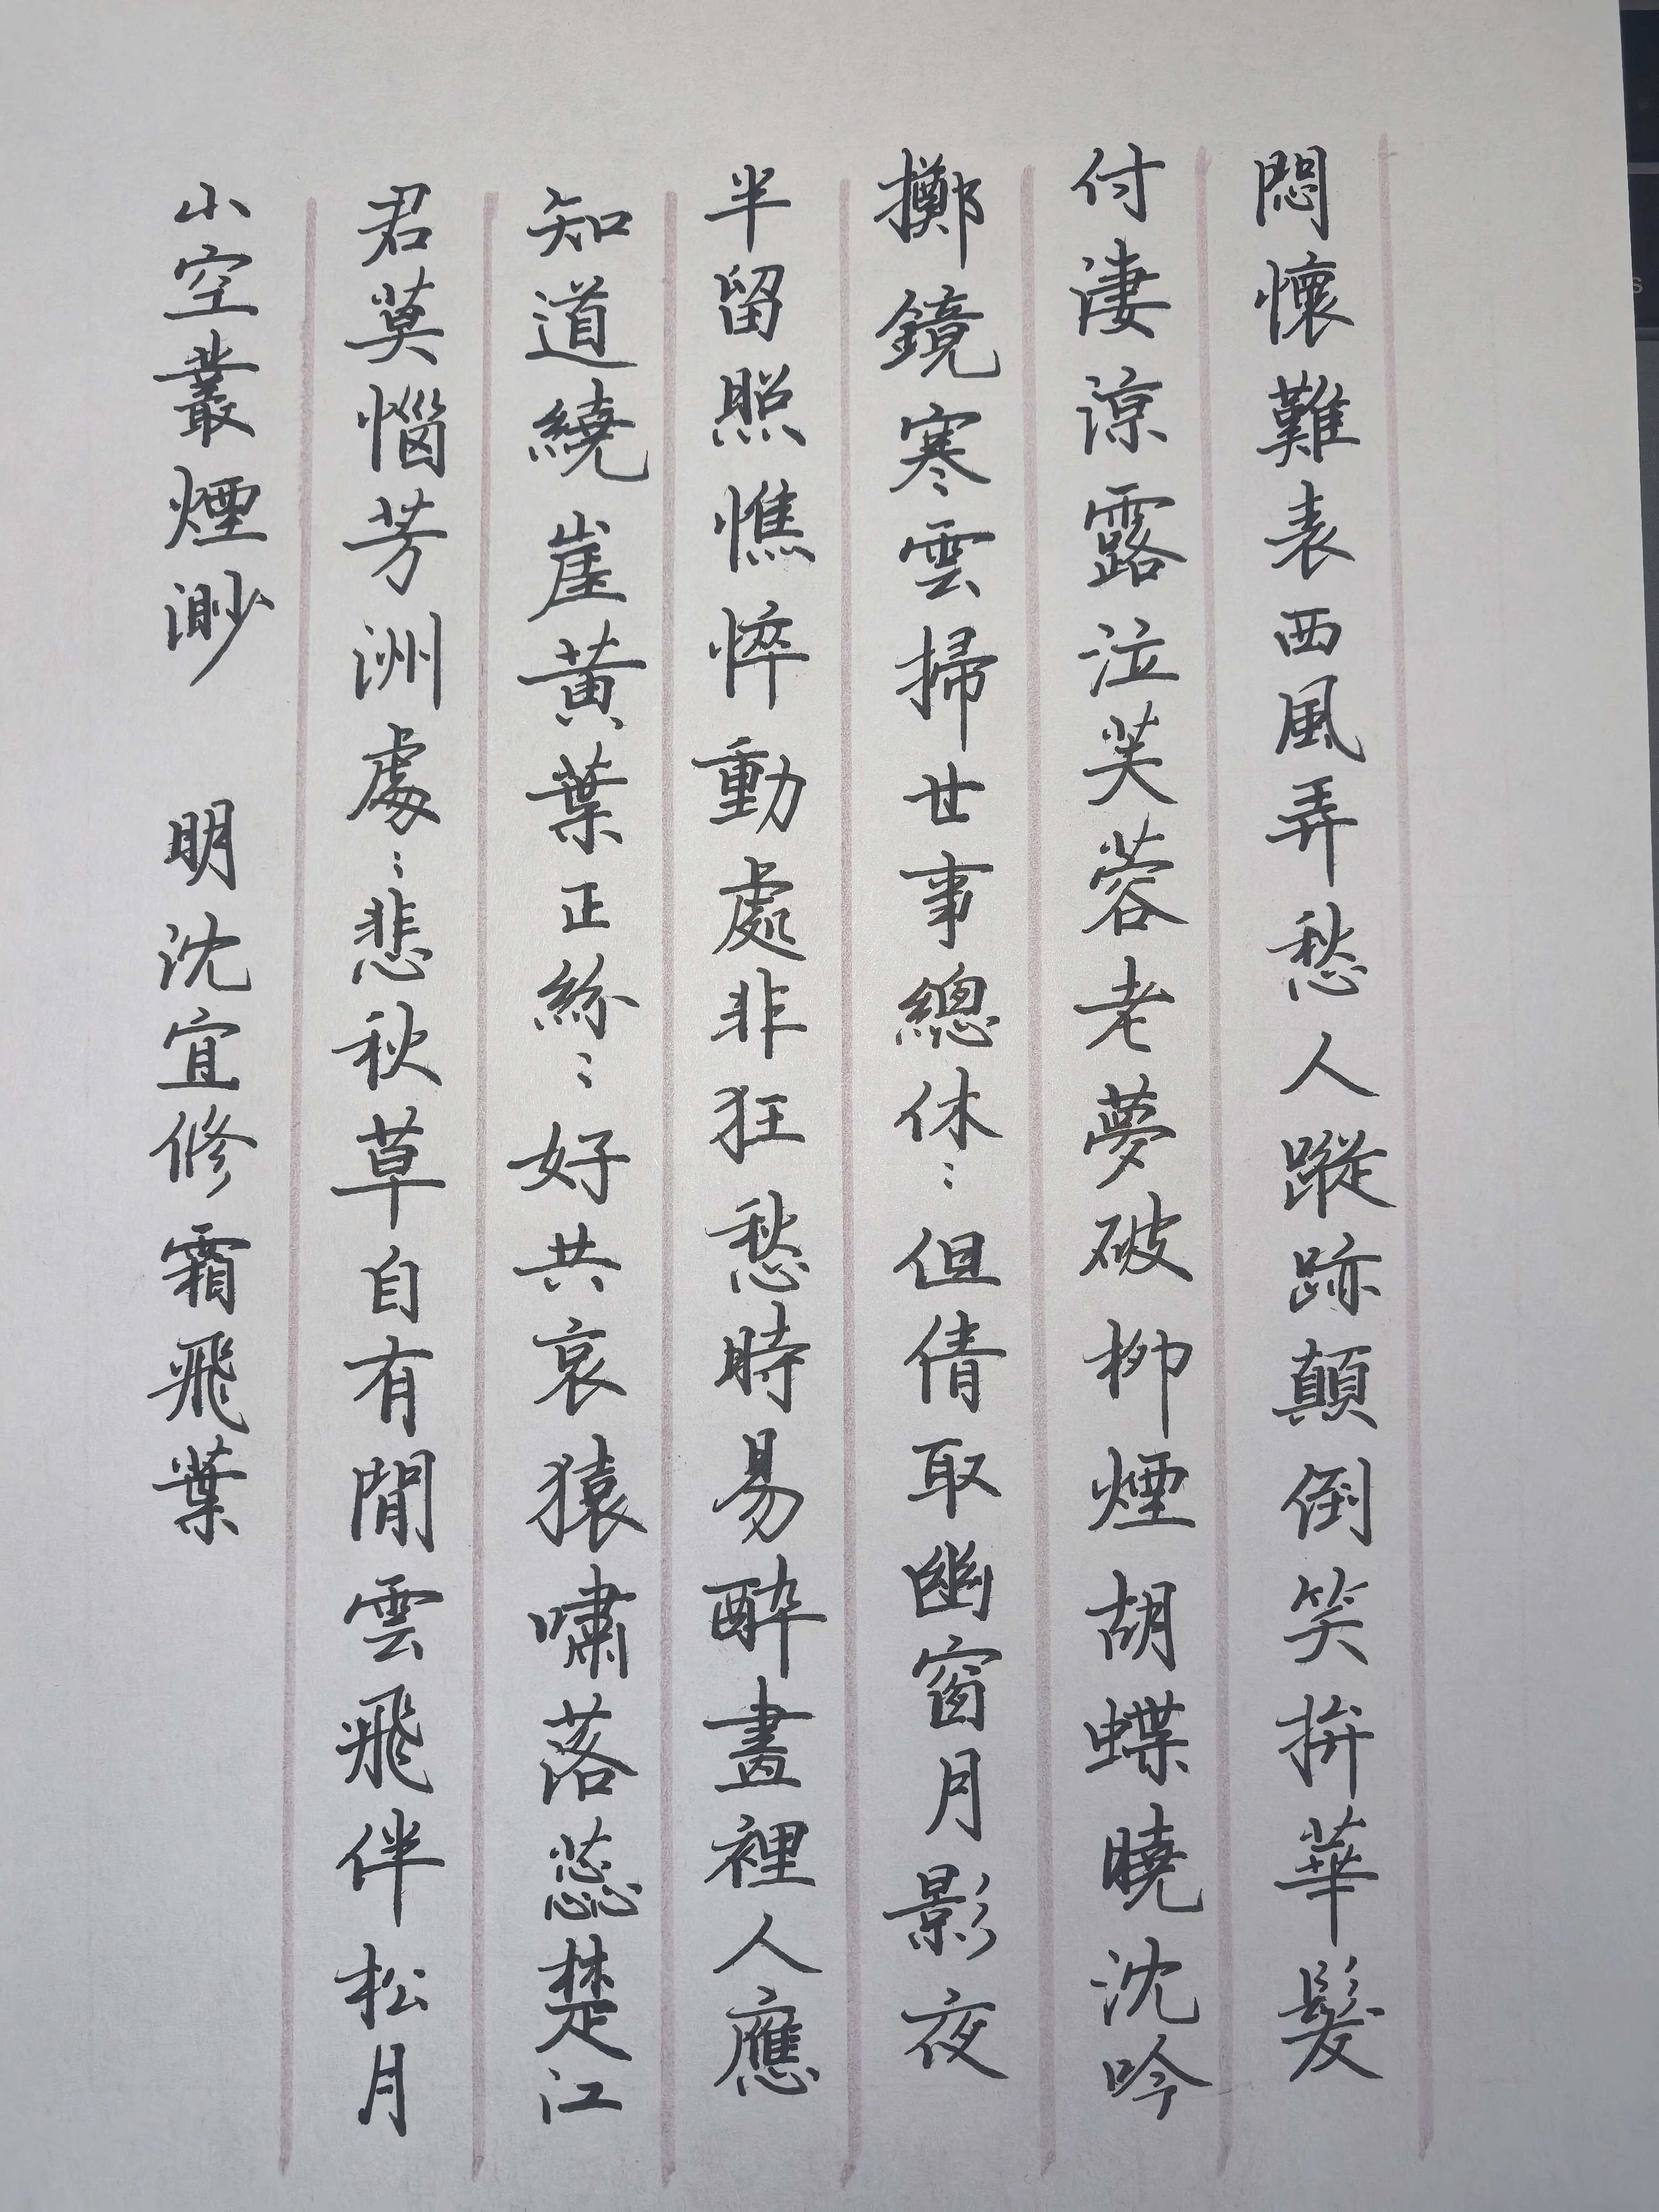 悶懷難表西風弄愁人蹤跡顛倒笑拚華髮
付淒涼露泣芙蓉老夢破柳煙胡蝶曉沈吟
擲鏡寒雲掃世事總休：但倩取幽窗月影夜
半留照憔悴動處非狂愁時易醉畫裡人應
知道繞崖黃葉正紛：好共哀猿嘯落蕊楚江
君莫惱芳洲處：悲秋草自有閒雲飛伴松月
小空叢煙渺　明沈宜修霜飛葉